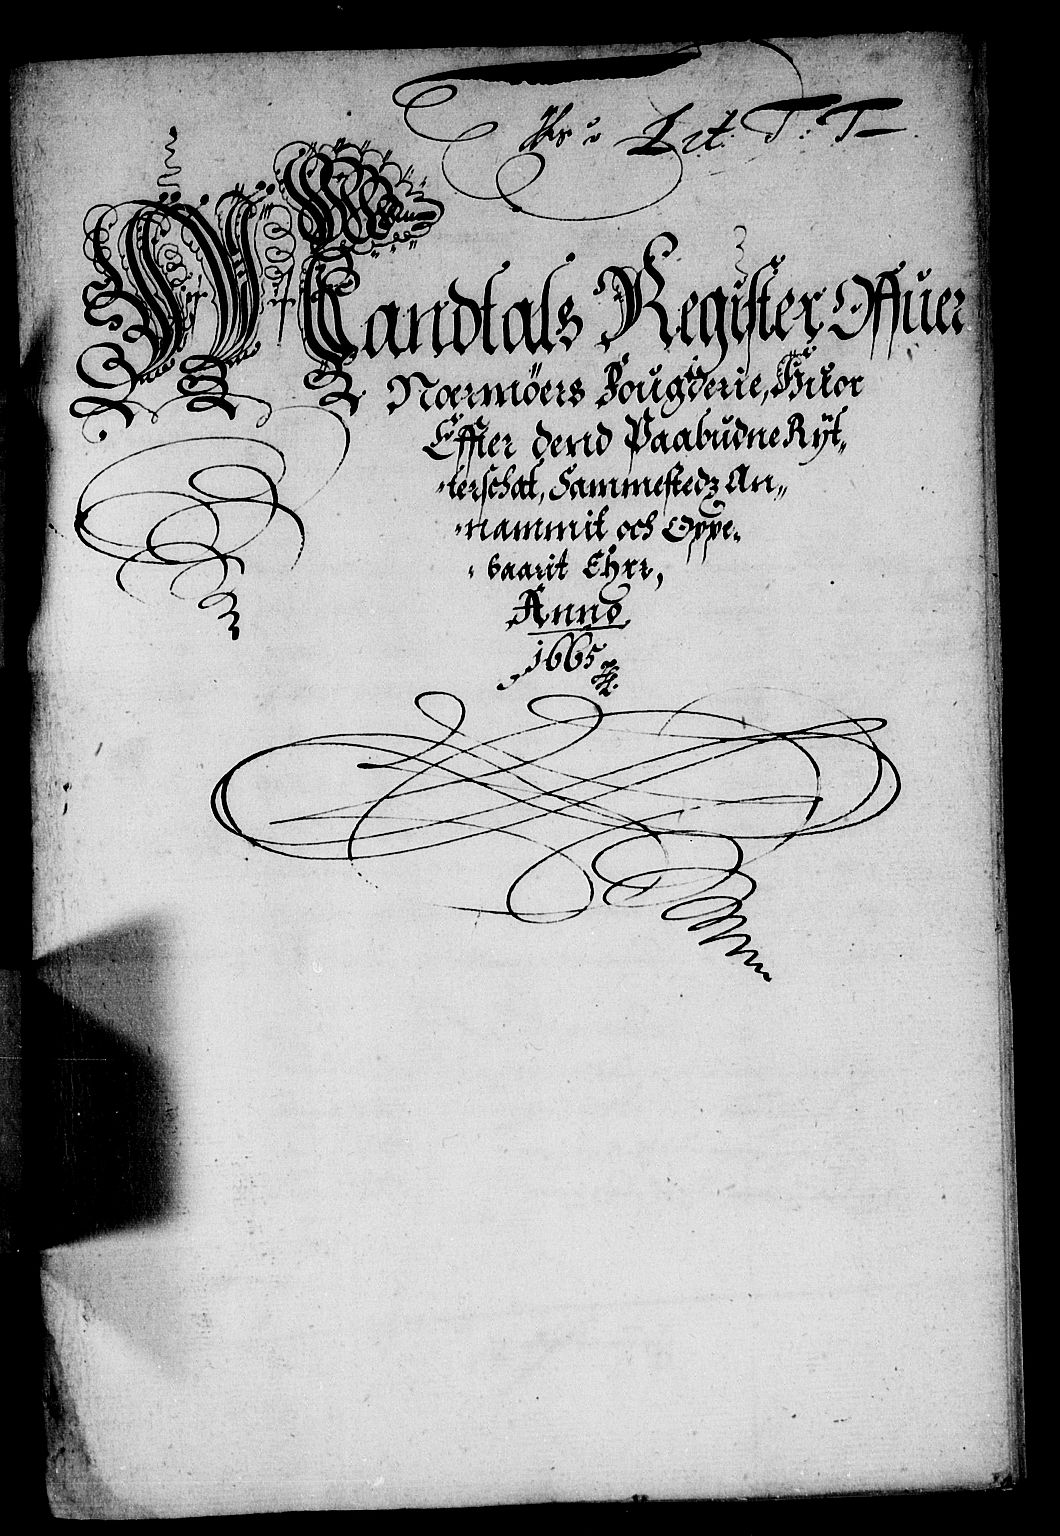 Lit: T: T
Mandtals Register Offuer
Noermöers Fougderie, Huor
Effter dend Paabudne Ryt„
„terschat, Sammestedz An„
„nammit och Oppe„
„baarit Ehrr,
Anno
1665